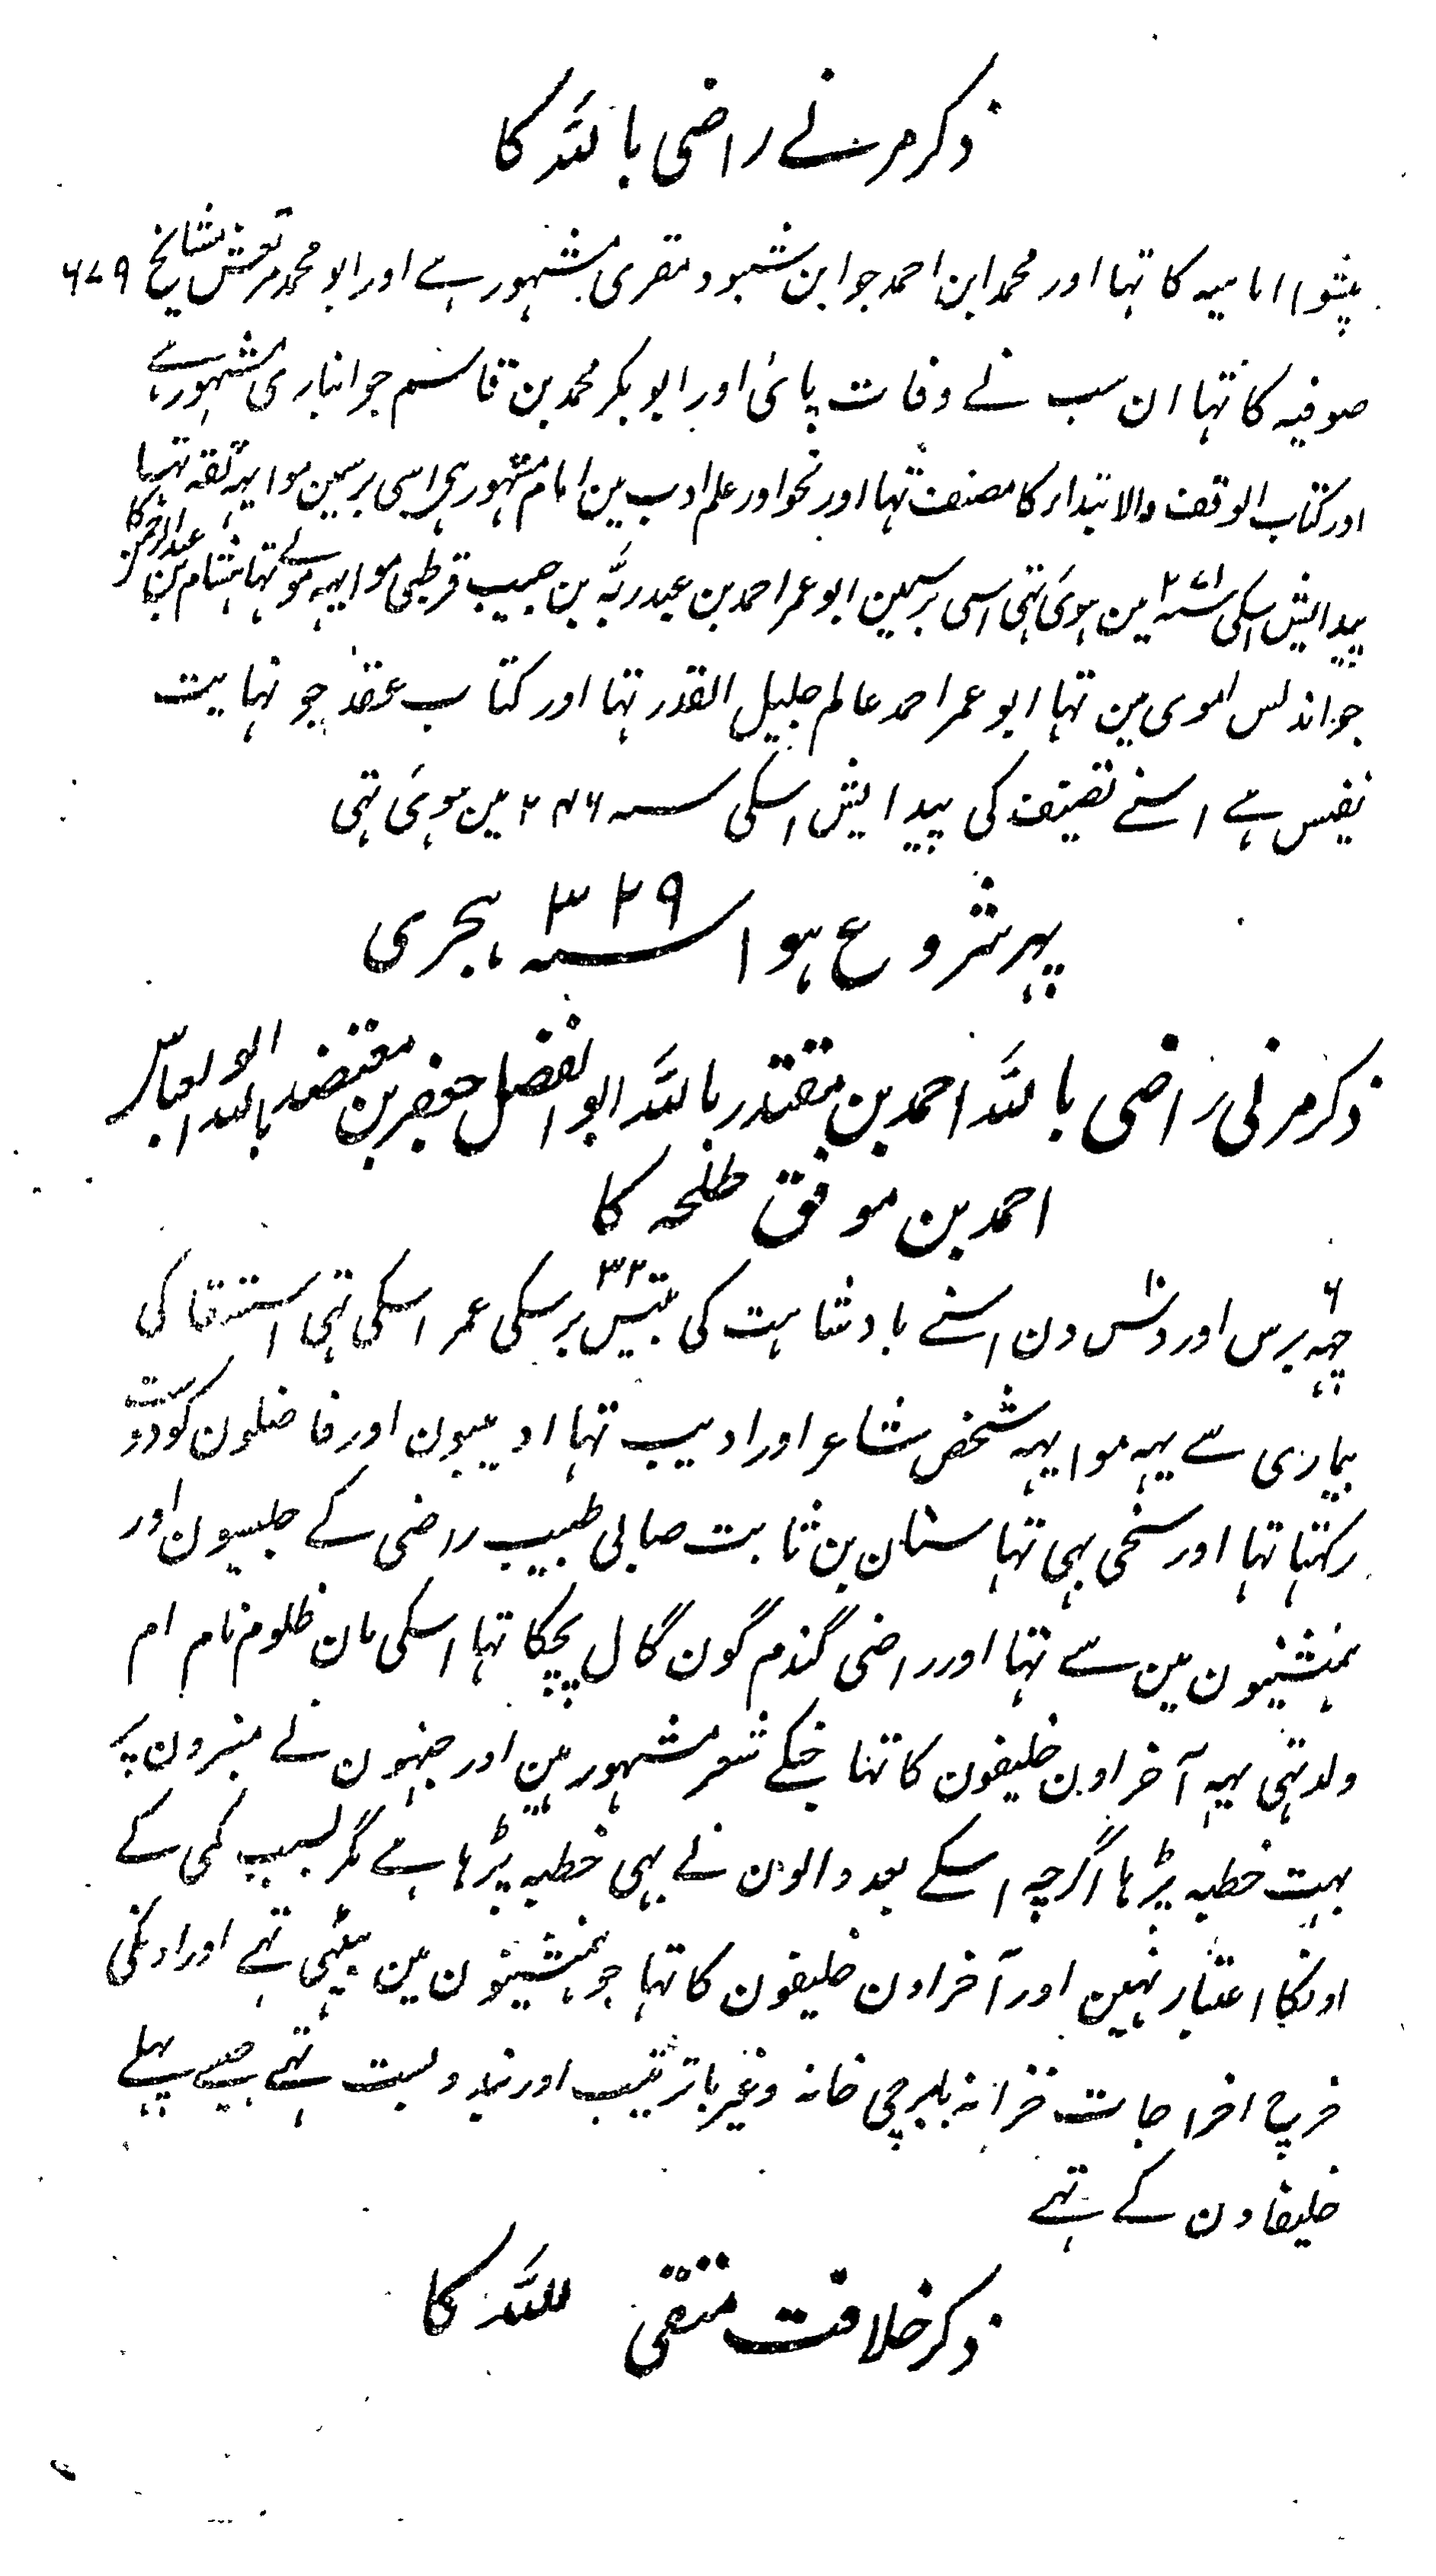 ذکر مرنے راضی باللہ کا
پیشوا امامیہ کا تہا اور محمد ابن احمد جو ابن شنبود مقری مشہور ہے اور ابو محمد مرتعش مشایخ ۶۷۹
صوفیہ کا تہا ان سب نے وفات پائی اور ابو بکر محمد بن قاسم جو انباری مشہور ہے
اور کتاب الوقف والابتداء کا مصنف تہا اور نحو اور علم ادب مین امام مشہور ہی اسی برسمین موا یہہ ثقہ تہا
پیدایش اسکی ۲۷۱ سنہ مین ہوئی تہی اسی برسمین ابو عمر احمد بن عبد ربّہ بن حبیب قرطبی موا یہہ مولے تہا ہشام بن عبدالرحمن کا
جو اندلس اموی مین تہا ابو عمر احمد عالم جلیل القدر تہا اور کتاب عقد جو نہایت
نفیس ہے اسنے تصنیف کی پیدایش اسکی سنہ ۲۴۶ مین ہوئی تہی
پہر شروع ہوا سنہ ۳۲۹ ہجری
ذکر مرنی راضی باللہ احمد بن مقتدر باللہ ابو الفضل جعفر بن معتضد باللہ ابو العباس
احمد بن موفق طلحہ کا
چہہ ۶ برس اور دس ۱۰ دن اسنے بادشاہت کی بتیس ۳۲ برسکی عمر اسکی تہی استسقا کی
بیماری سے یہہ موا یہہ شخص شاعر اور ادیب تہا ادیبون اور فاضلون کو دوست
رکہتا تہا اور سخی بہی تہا سنان بن ثابت صابی طبیب راضی کے جلیسون اور
ہمنشینون مین سے تہا اور راضی گندم گون گال پچکا تہا اسکی مان ظلوم نام ام
ولد تہی یہہ آخر اون خلیفون کا تہا جنکے شعر مشہور ہین اور جنہون نے منبرون پر
بہت خطبہ پڑہا اگرچہ اسکے بعد والون نے بہی خطبہ پڑہا ہے مگر بسبب کمی کے
اونکا اعتبار نہین اور آخر اون خلیفون کا تہا جو ہمنشینون مین بیٹہی تہے اور اونکی
خرچ اخراجات خزانہ بابرچی خانہ وغیر باترتیب اور بندوبست تہے جیسے پہلے
خلیفاون کے تہے
ذکر خلافت متقی للہ کا